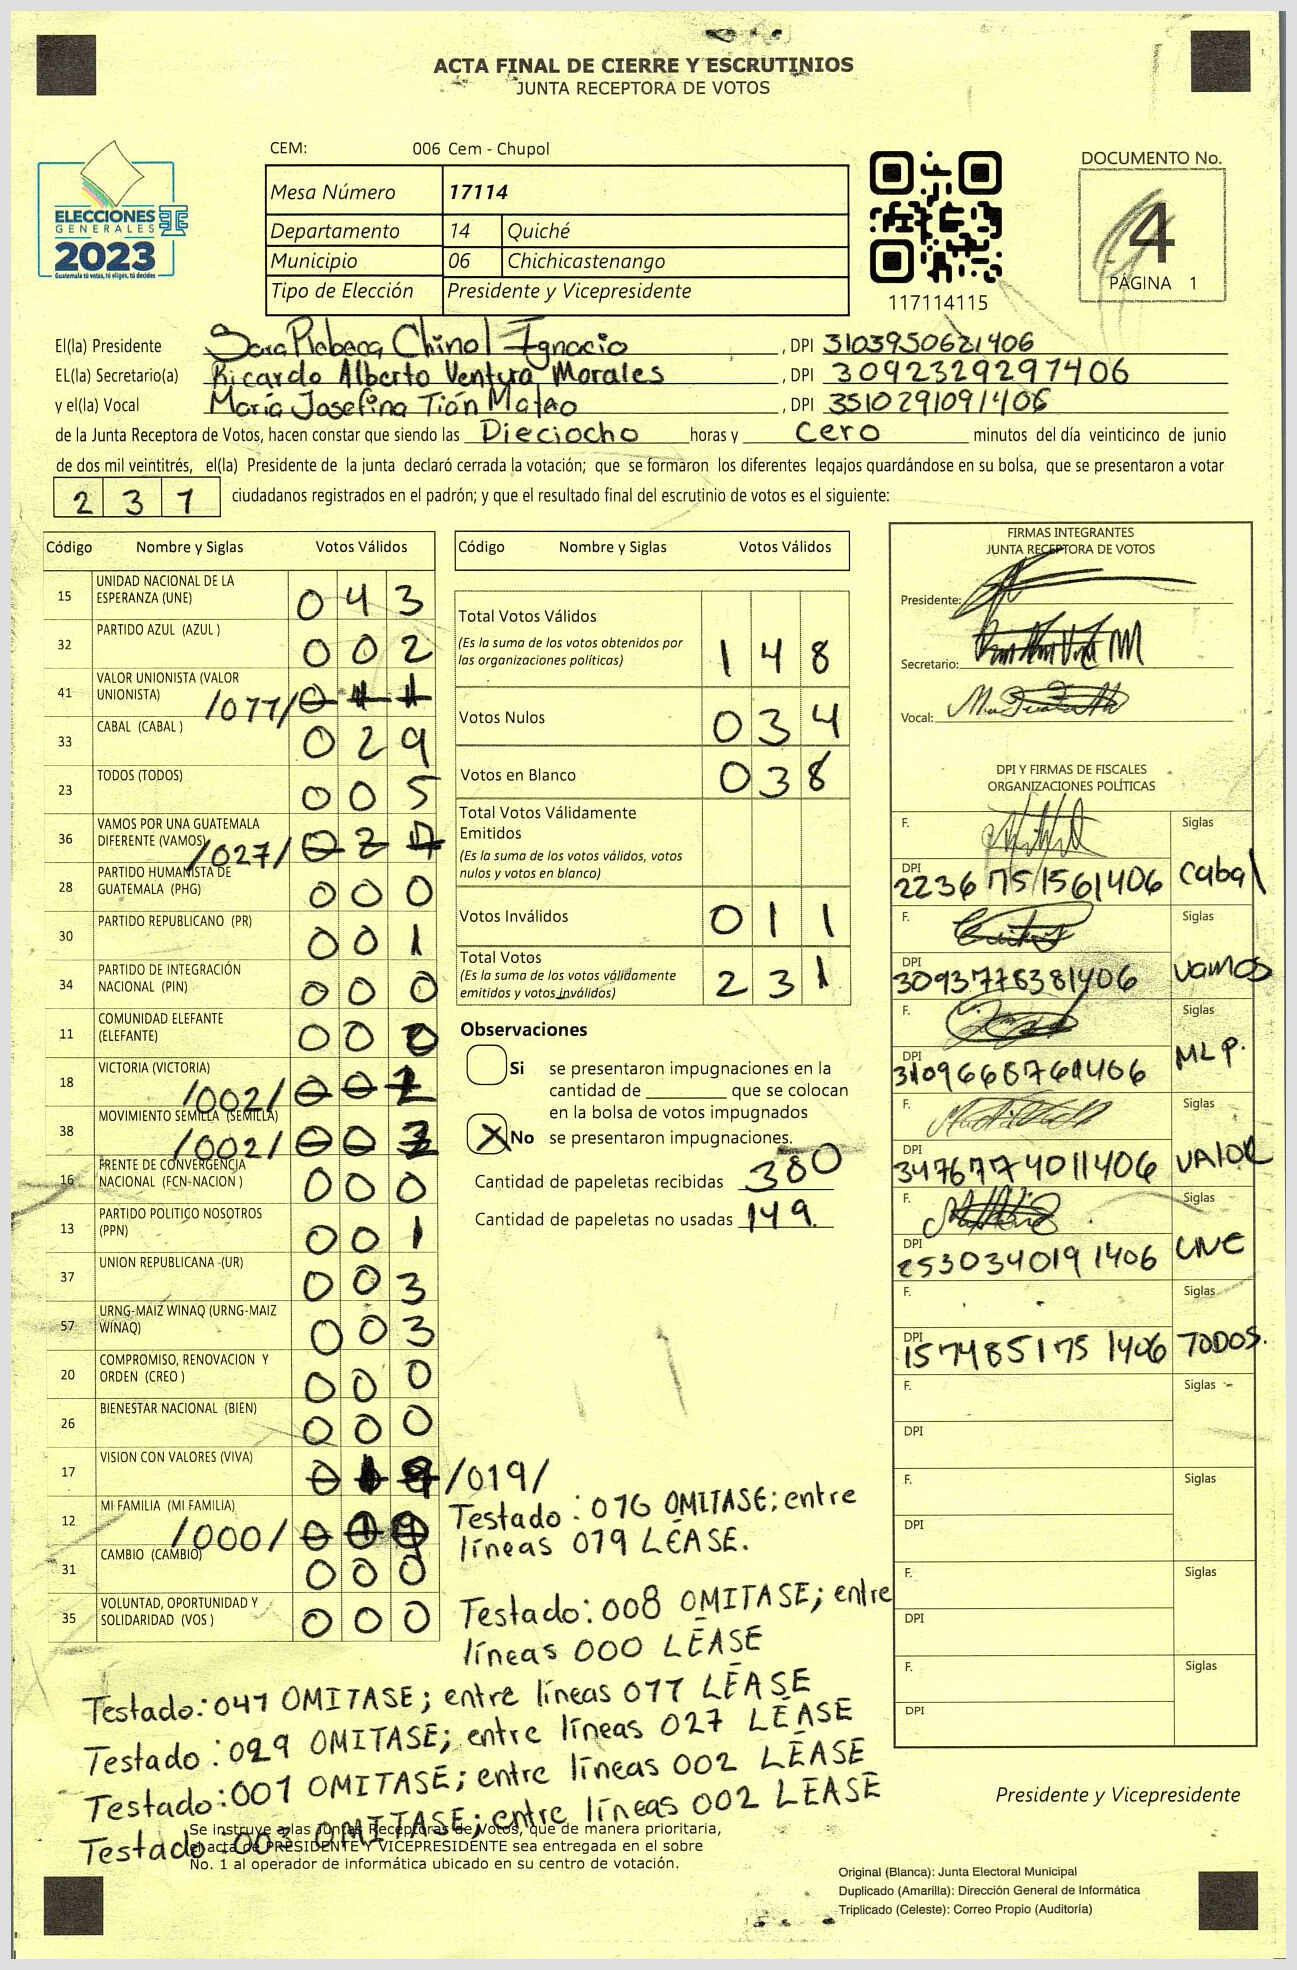 ACTA FINAL DE CIERRE Y ESCRUTINIOS
JUNTA RECEPTORA DE VOTOS
ELECCIONES
GENERALES
2023
Guatemala tú votas, tú eliges, tú decides
CEM: 006 Cem - Chupol
Mesa Número 17114
Departamento 14 Quiché
Municipio 06 Chichicastenango
Tipo de Elección Presidente y Vicepresidente
117114115
DOCUMENTO No.
4
PÁGINA 1
El(la) Presidente Sara Rebeca Chinol Ignacio , DPI 3103950621406
EL(la) Secretario(a) Ricardo Alberto Ventura Morales , DPI 3092329297406
y el(la) Vocal María Josefina Tián Mateo , DPI 3510291091406
de la Junta Receptora de Votos, hacen constar que siendo las Dieciocho horas y Cero minutos del día veinticinco de junio
de dos mil veintitrés, el(la) Presidente de la junta declaró cerrada la votación; que se formaron los diferentes legajos guardándose en su bolsa, que se presentaron a votar
231 ciudadanos registrados en el padrón; y que el resultado final del escrutinio de votos es el siguiente:
Código Nombre y Siglas Votos Válidos
15 UNIDAD NACIONAL DE LA ESPERANZA (UNE) 043
32 PARTIDO AZUL (AZUL ) 002
41 VALOR UNIONISTA (VALOR UNIONISTA) /011/
33 CABAL (CABAL ) 029
23 TODOS (TODOS) 005
36 VAMOS POR UNA GUATEMALA DIFERENTE (VAMOS) /027/
28 PARTIDO HUMANISTA DE GUATEMALA (PHG) 000
30 PARTIDO REPUBLICANO (PR) 001
34 PARTIDO DE INTEGRACIÓN NACIONAL (PIN) 000
11 COMUNIDAD ELEFANTE (ELEFANTE) 000
18 VICTORIA (VICTORIA) /002/
38 MOVIMIENTO SEMILLA (SEMILLA) /002/
16 FRENTE DE CONVERGENCIA NACIONAL (FCN-NACION ) 000
13 PARTIDO POLITICO NOSOTROS (PPN) 001
37 UNION REPUBLICANA (UR) 003
57 URNG-MAIZ WINAQ (URNG-MAIZ WINAQ) 003
20 COMPROMISO, RENOVACION Y ORDEN (CREO ) 000
26 BIENESTAR NACIONAL (BIEN) 000
17 VISION CON VALORES (VIVA) /019/
12 MI FAMILIA (MI FAMILIA) /000/
31 CAMBIO (CAMBIO) 000
35 VOLUNTAD, OPORTUNIDAD Y SOLIDARIDAD (VOS ) 000
Código Nombre y Siglas Votos Válidos
Total Votos Válidos
(Es la suma de los votos obtenidos por
las organizaciones políticas) 148
Votos Nulos 034
Votos en Blanco 038
Total Votos Válidamente
Emitidos
(Es la suma de los votos válidos, votos
nulos y votos en blanco)
Votos Inválidos 011
Total Votos
(Es la suma de los votos válidamente
emitidos y votos inválidos) 231
Observaciones
Si se presentaron impugnaciones en la
cantidad de que se colocan
en la bolsa de votos impugnados
X No se presentaron impugnaciones.
Cantidad de papeletas recibidas 380
Cantidad de papeletas no usadas 149.
Testado: 016 OMITASE; entre
líneas 019 LÉASE.
Testado: 008 OMITASE; entre
líneas 000 LÉASE
Testado: 041 OMITASE; entre líneas 011 LÉASE
Testado: 029 OMITASE; entre líneas 027 LÉASE
Testado: 001 OMITASE; entre líneas 002 LÉASE
Testado 003 OMITASE; entre líneas 002 LEASE
FIRMAS INTEGRANTES
JUNTA RECEPTORA DE VOTOS
Presidente:
Secretario:
Vocal:
DPI Y FIRMAS DE FISCALES
ORGANIZACIONES POLÍTICAS
F. Siglas
DPI 2236751561406 Cabal
F. Siglas
DPI 3093778381406 Vamos
F. Siglas
DPI 3109668761406 MLP.
F. Siglas
DPI 3476774011406 VALOR
F. Siglas
DPI 2530340191406 UNE
F. Siglas
DPI 1574851751406 TODOS.
F. Siglas
DPI
F. Siglas
DPI
F. Siglas
DPI
F. Siglas
DPI
Presidente y Vicepresidente
Se instruye a las Juntas Receptoras de Votos, que de manera prioritaria,
el acta de PRESIDENTE Y VICEPRESIDENTE sea entregada en el sobre
No. 1 al operador de informática ubicado en su centro de votación.
Original (Blanca): Junta Electoral Municipal
Duplicado (Amarilla): Dirección General de Informática
Triplicado (Celeste): Correo Propio (Auditoría)